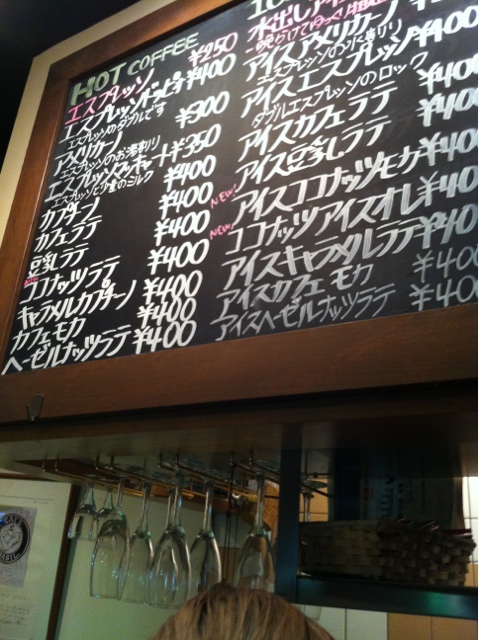 HOT COFFEE
エスプレッソ ¥250
エスプレッソドッピオ ¥400
エスプレッソのダブルです
アメリカーノ ¥300
エスプレッソのお湯割り
エスプレッソマッキャート ¥350
エスプレッソに少量のミルク
カプチーノ ¥400
カフェラテ ¥400
豆乳ラテ ¥400
ココナッツラテ ¥400
キャラメルカプチーノ ¥400
カフェモカ ¥400
ヘーゼルナッツラテ ¥400
水出しアイス
アイスアメリカーノ
エスプレッソの水割り
アイスエスプレッソ ¥400
ダブルエスプレッソのロック
アイスカフェラテ ¥400
アイス豆乳ラテ ¥400
NEW! アイスココナッツモカ ¥400
NEW! ココナッツアイスオレ ¥400
アイスキャラメルラテ ¥400
アイスカフェモカ ¥400
アイスヘーゼルナッツラテ ¥400